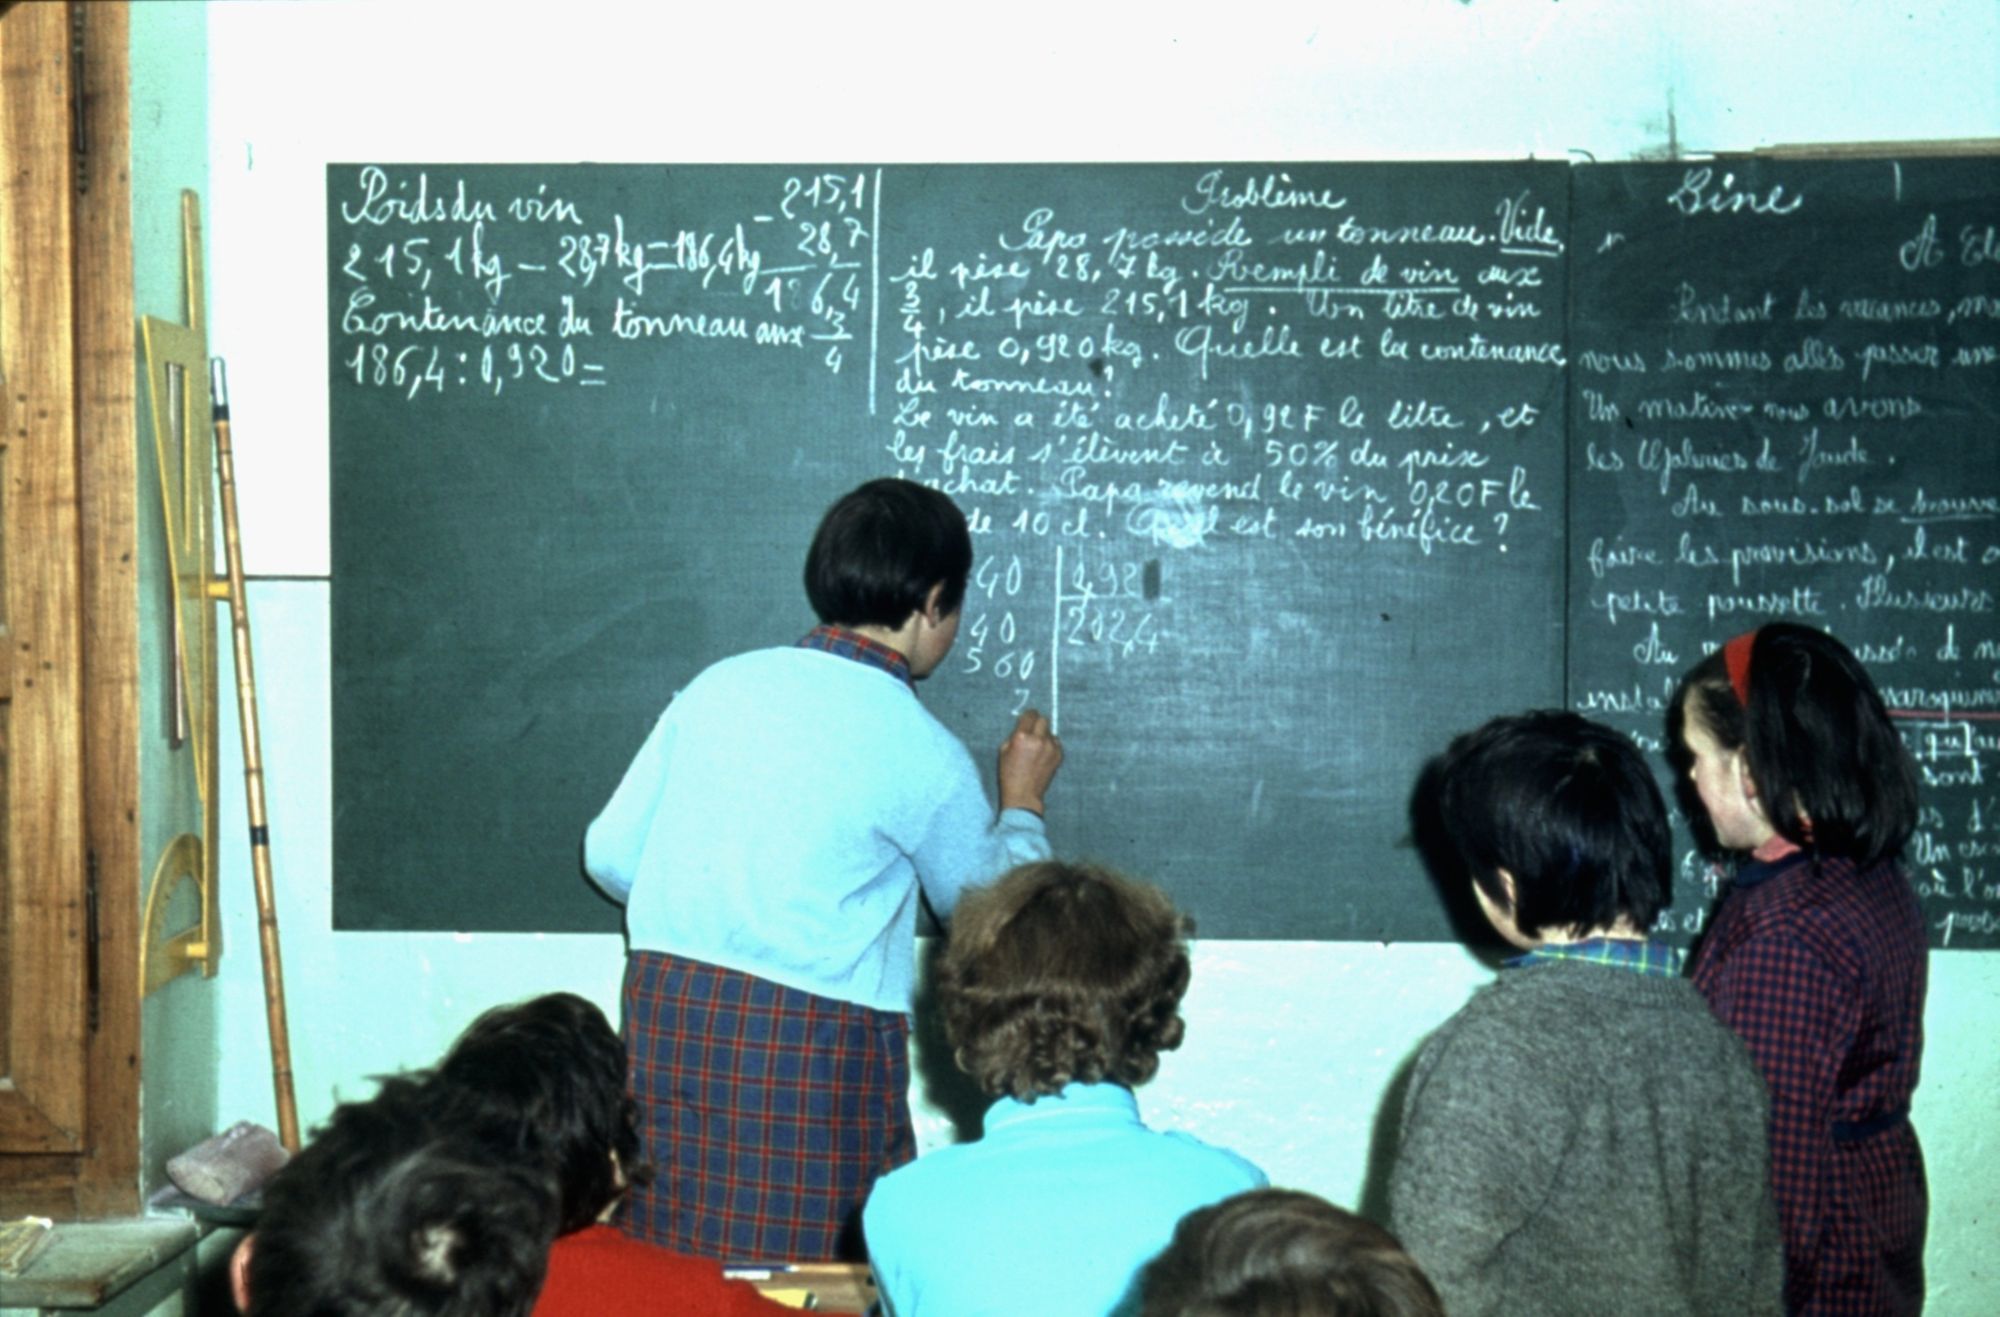 Poids du vin
215,1kg - 28,7kg = 186,4kg
Contenance du tonneau aux 3/4
186,4 : 0,920 =
- 215,1
28,7
186,4
Problème
Papa possède un tonneau. Vide,
il pèse 28,7kg. Rempli de vin aux
3/4, il pèse 215,1kg. Un litre de vin
pèse 0,920kg. Quelle est la contenance
du tonneau?
Le vin a été acheté 0,92F le litre, et
les frais s'élèvent à 50% du prix
achat. Papa revend le vin 0,20F le
de 10 cl. Quel est son bénéfice ?
40 0,92
40 202,4
560
Pendant les vacances,
nous sommes allés passer une
Un matin nous avons
les Galeries de Jaude.
Au sous-sol se trouve
faire les provisions, il est
petite poussette. Plusieurs
Au
qu
sont
Un
où l'
et